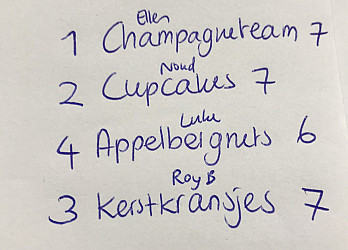 Ellen
1 Champagneteam 7
Noud
2 Cupcakes 7
Luku
4 Appelbeignets 6
Roy B
3 Kerstkransjes 7